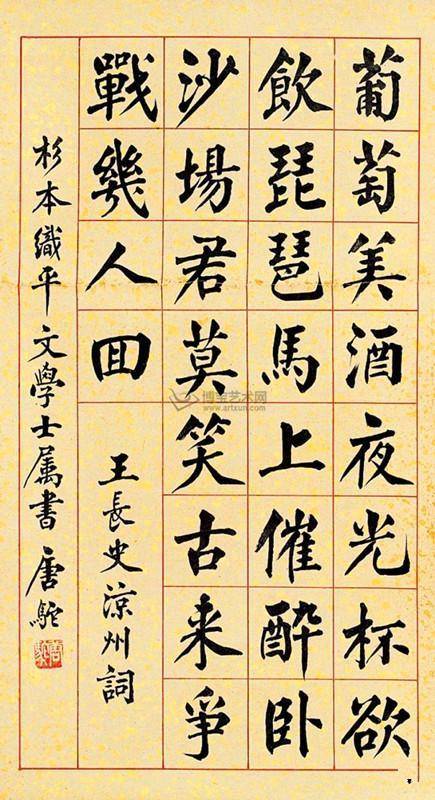 葡萄美酒夜光杯欲
飲琵琶馬上催醉卧
沙場君莫笑古来爭
戰幾人回
王長史涼州詞
杉本織平文學士属書 唐駝
博宝艺术网
www.artxun.com